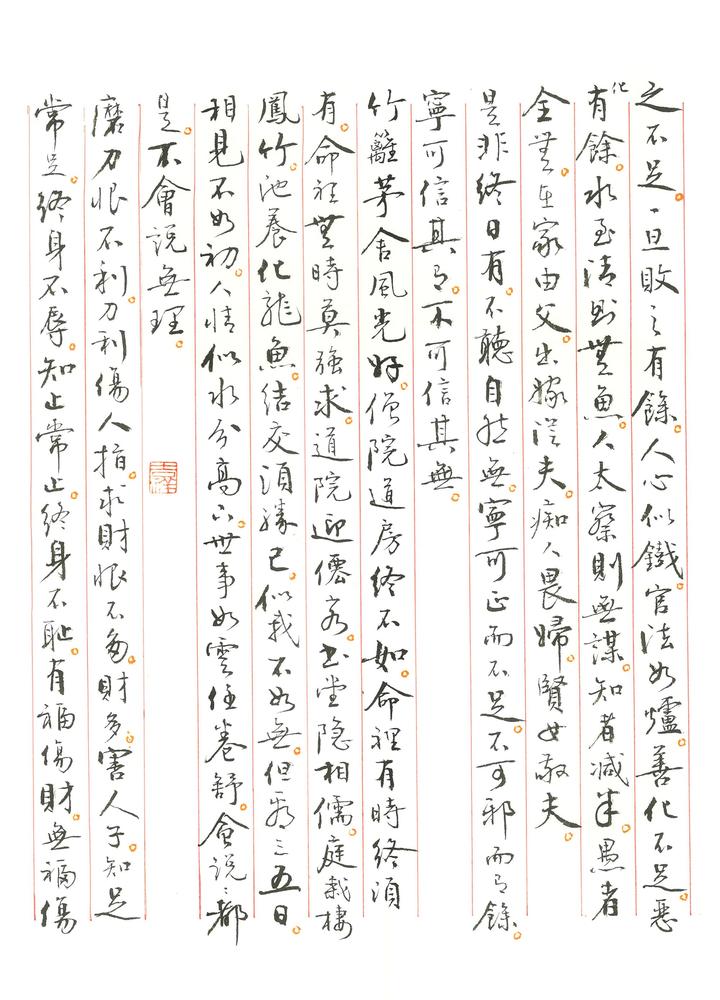 之不足。一旦敗之有餘。人心似鐵。官法如爐。善化不足。惡
化有餘。水至清則無魚。人太察則無謀。知者減半。愚者
全無。在家由父。出嫁從夫。痴人畏婦。賢女敬夫。
是非終日有。不聽自然無。寧可正而不足。不可邪而有餘。
寧可信其有。不可信其無。
竹籬茅舍風光好。僧院道房終不如。命裡有時終須
有。命裡無時莫強求。道院迎僊客。書堂隱相儒。庭栽棲
鳳竹。池養化龍魚。結交須勝己。似我不如無。但看三五日。
相見不如初。人情似水分高下。世事如雲任卷舒。會說〻都
是。不會說無理。
磨刀恨不利。刀利傷人指。求財恨不多。財多害人子。知足
常足。終身不辱。知止常止。終身不恥。有福傷財。無福傷